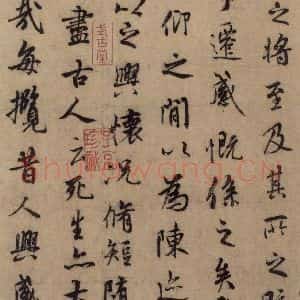 之將至及其所之
遷感慨係之矣
仰之間以為陳迹
以之興懷況脩短隨
盡古人云死生亦大
哉每攬昔人興感